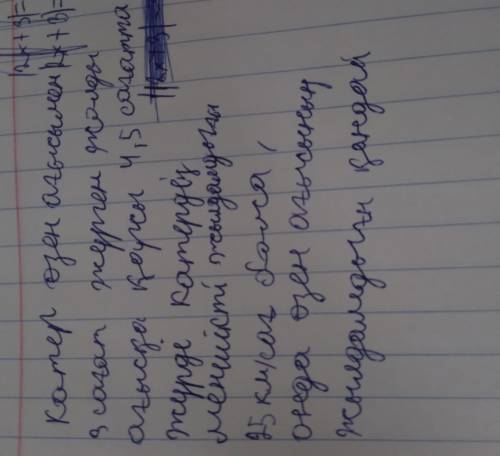 |2x+3|=
|2x+3|=
Катер өзен ағысымен
3 сағат жүрген жолды
ағысқа қарсы 4,5 сағатта
жүрді катердің
меншікті жылдамдығы
25 км/сағ болса,
онда өзен ағысының
жылдамдығы қандай